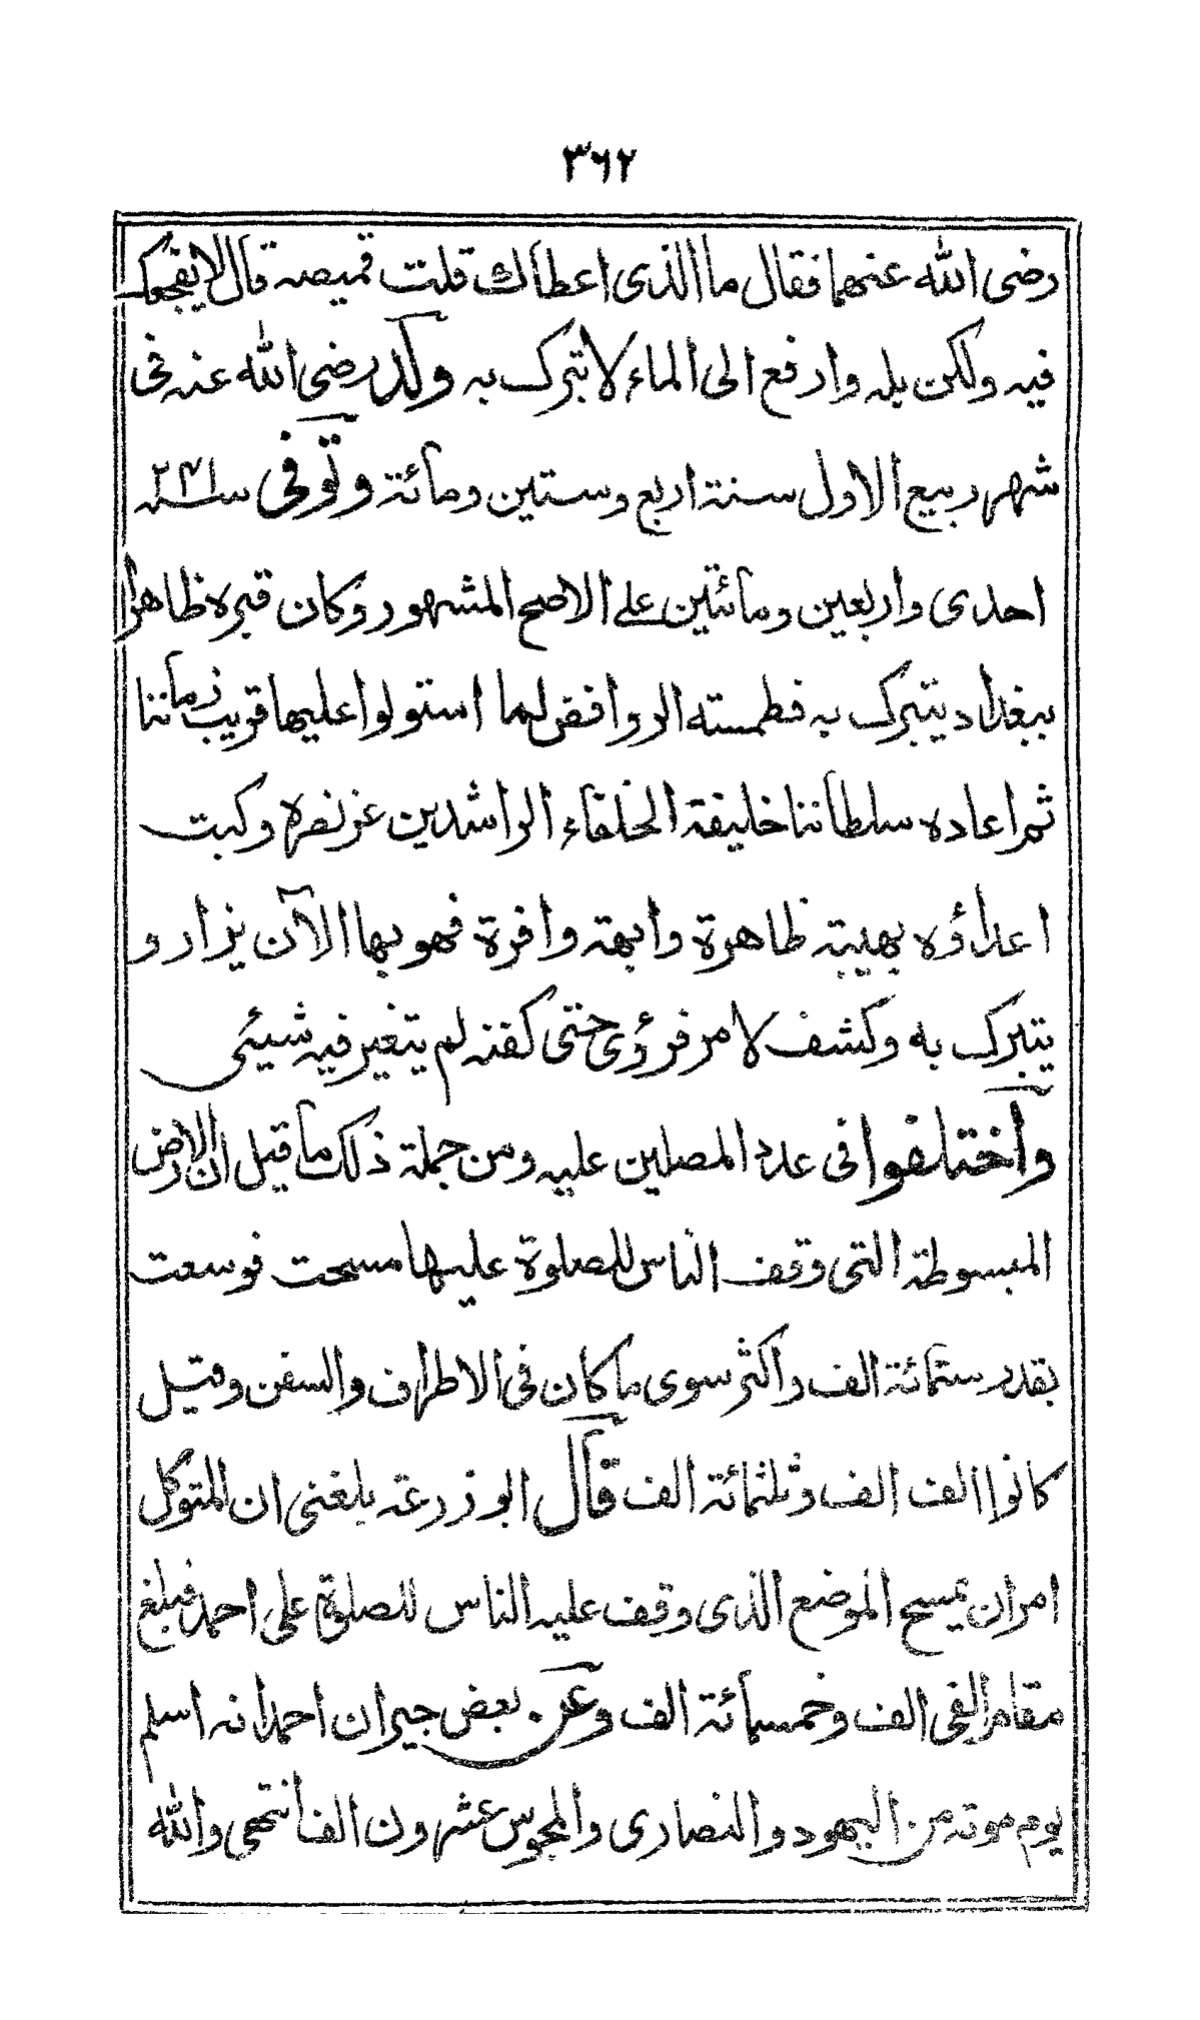 ٣٦٢
رضى الله عنهما فقال ما الذى اعطاك قلت قميصه قال لا يفجعك
فيه ولكن بله وادفع الى الماء لاتبرك به ولد رضى الله عنه فى
شهر ربيع الاول سنة اربع وستين ومائة وتوفى سنة ٢٤١
احدى واربعين ومائتين على الاصح المشهور وكان قبره ظاهرا
ببغداد يتبرك به فطمسته الروافض لما استولوا عليها قريب زماننا
ثم اعاده سلطاننا خليفة الخلفاء الراشدين عز نصره وكبت
اعداؤه بهيبة ظاهرة وابهة وافرة فهو بها الآن يزار و
يتبرك به وكشف لامر فرؤى حتى كفنه لم يتغير فيه شيئى
واختلفوا فى عدد المصلين عليه ومن جملة ذلك ما قيل ان الارض
المبسوطة التى وقف الناس للصلوة عليها مسحت فوسعت
بقدر ستمائة الف واكثر سوى ما كان فى الاطراف والسفن وقيل
كانوا الف الف وثلثمائة الف قال ابو زرعة بلغنى ان المتوكل
امر ان يمسح الموضع الذى وقف عليه الناس للصلوة على احمد فبلغ
مقام الفى الف وخمسمائة الف وعن بعض جيران احمد انه اسلم
يوم موته من اليهود والنصارى والمجوس عشرون الفا انتهى والله